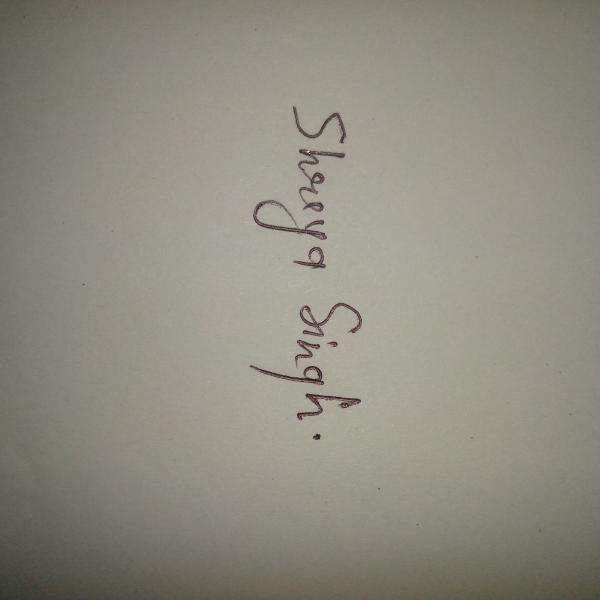 Shreya Singh.